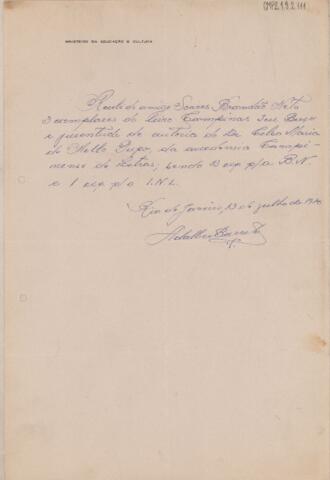 CMP2.1.9.2.111
MINISTÉRIO DA EDUCAÇÃO E CULTURA
Recebi do amigo Soares Brandão Neto
3 exemplares do livro Campinas Seu Berço
e juventude de autoria do Dr Celso Maria
de Mello Pupo, da academia Campi-
nense de Letras, sendo 2 exp p/a B.N
e 1 exp p/o I.N.L.
Rio de Janeiro, 13 de julho de 19
Adalberto Barreto